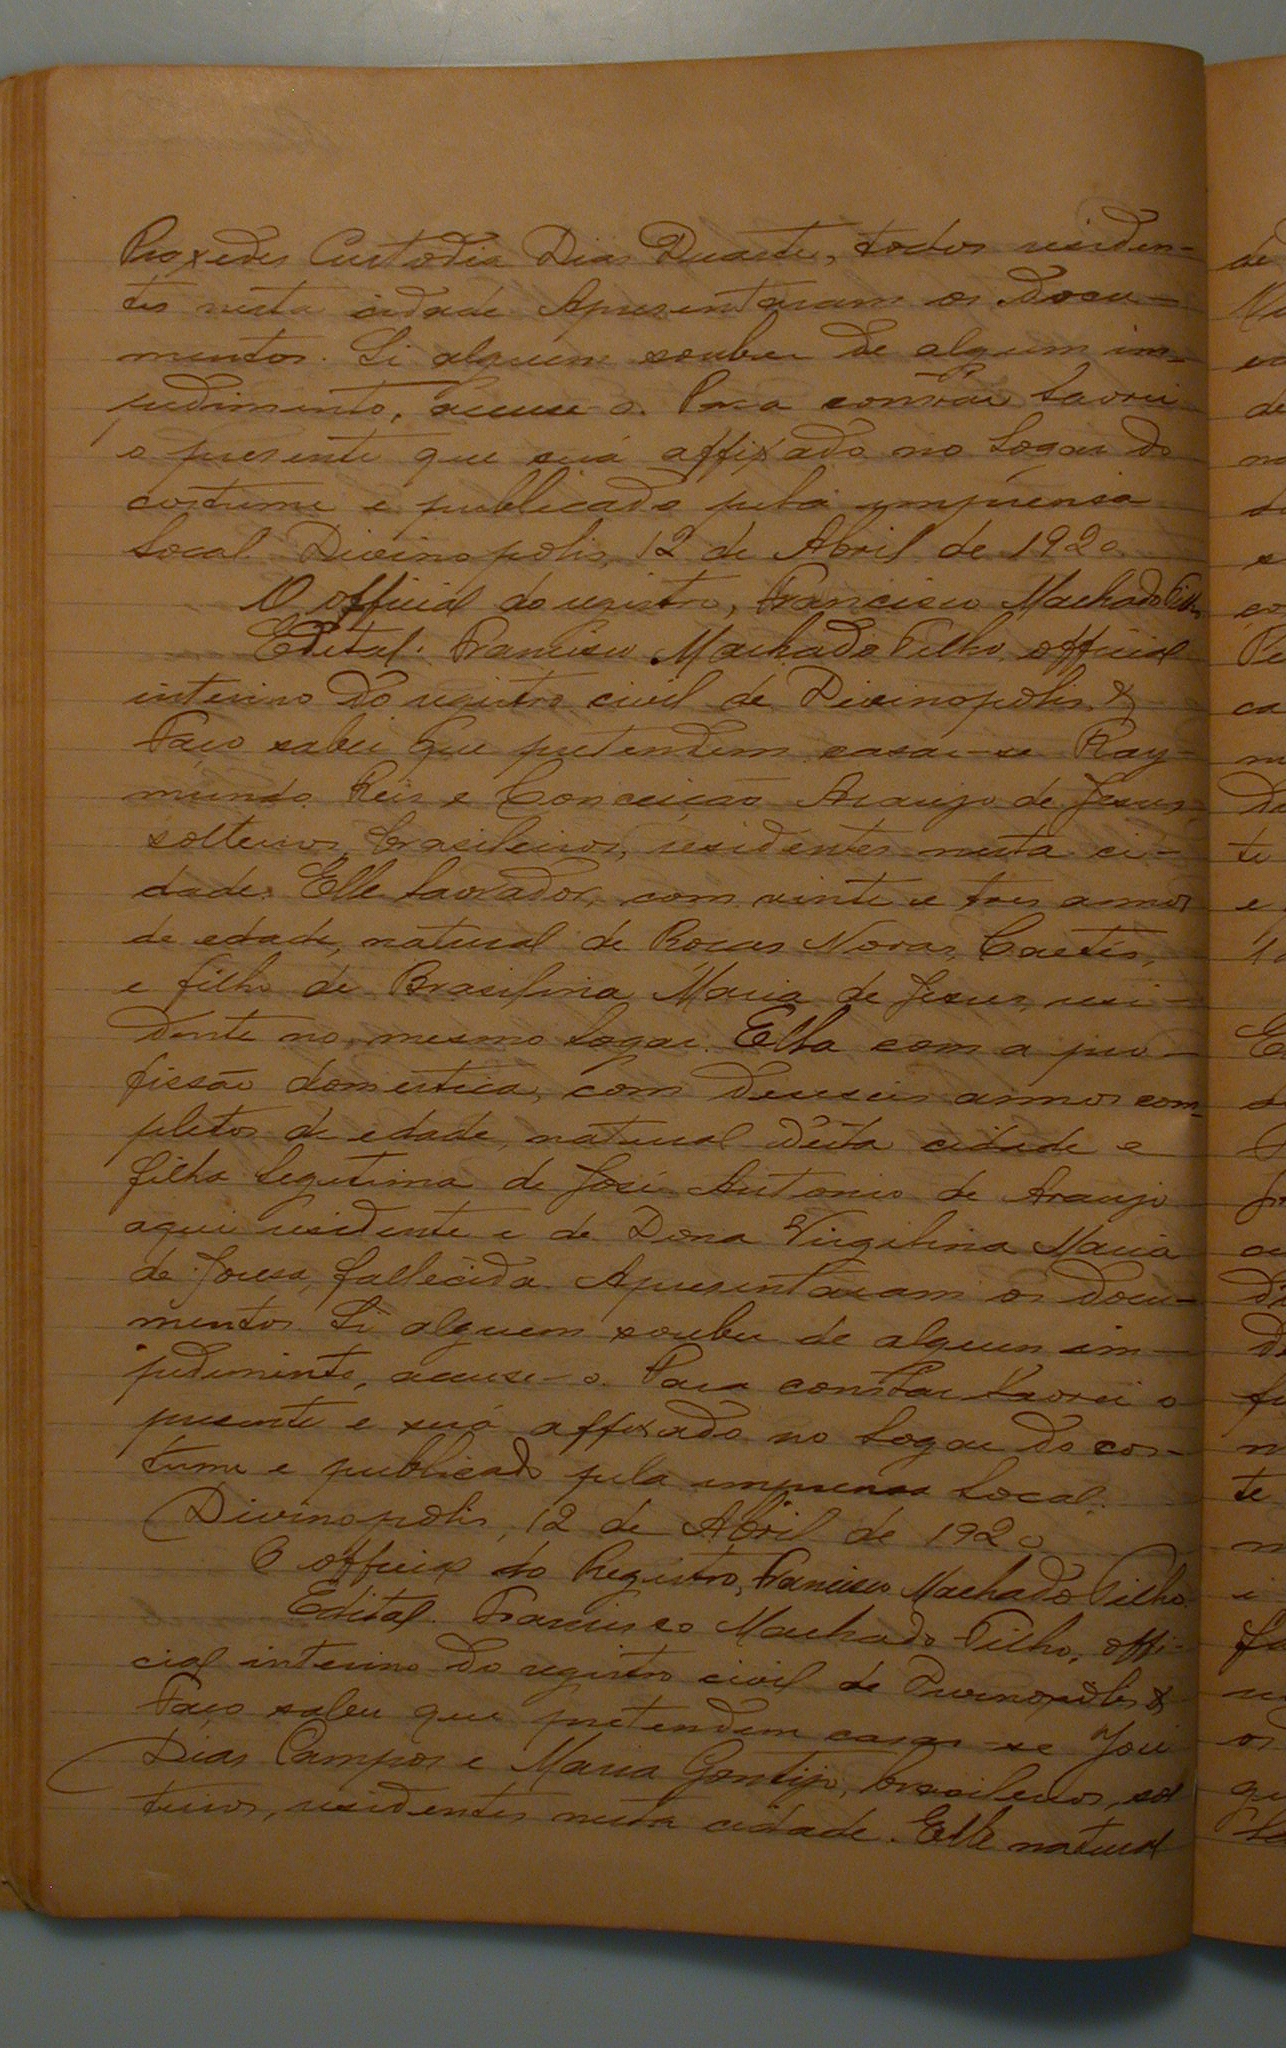 Proxedes Custodia Dias Duarte, todos residen-
tes nesta cidade Apresentaram os docu-
mentos. Si alguem souber de algum im-
pedimento, accuse-o. Para constar lavrei
o presente que será affixado no logar do
costume e publicado pela imprensa
local Divinopolis, 12 de Abril de 1920
O official do registro, Francisco Machado Filho
Edital. Francisco Machado Filho, official
interino do registro civil de Divinopolis &
Faço saber que pretendem casar-se Ray-
mundo Reis e Conceição Araujo de Jesus,
solteiros, brasileiros, residentes nesta ci-
dade. Elle lavrador, com vinte e tres annos
de edade, natural de Rocas Novas, Caetés,
e filho de Brasilina Maria de Jesus, resi-
dente no mesmo logar. Ella com a pro-
fissão domestica, com deseseis annos com-
pletos de edade, natural d'esta cidade e
filha legitima de José Antonio de Araujo
aqui residente e de Dona Virgilina Maria
de Jesus, fallecida. Apresentaram os docu-
mentos. Si alguem souber de algum im-
pedimento, accuse-o. Para constar lavrei o
presente e será affixado no logar do cos-
tume e publicado pela imprensa local.
Divinopolis, 12 de Abril de 1920
O official do Registro, Francisco Machado Filho.
Edital. Francisco Machado Filho, offi-
cial interino do registro civil de Divinopolis &
Faço saber que pretendem casar-se José
Dias Campos e Maria Gontijo, brasileiros, sol
teiros, residentes nesta cidade. Elle natural